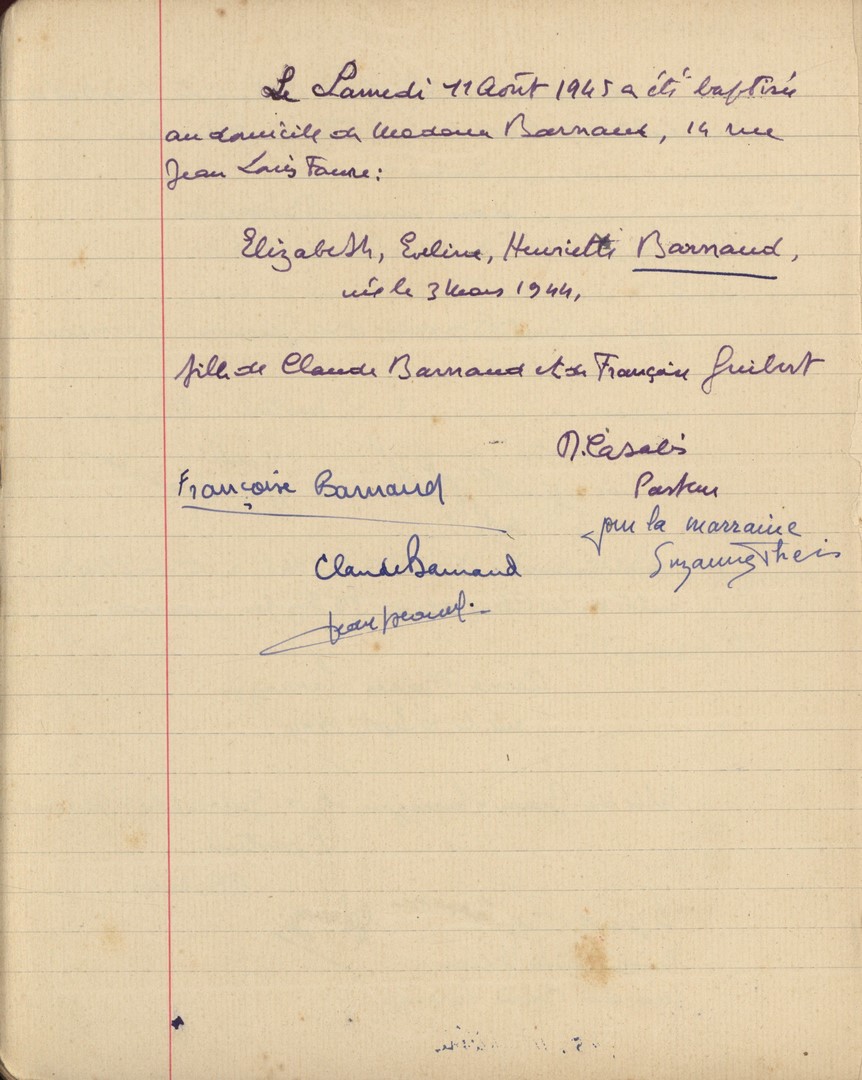 Le Samedi 11 Août 1945 a été baptisée
au domicile de Madame Barnaud, 14 rue
Jean Louis Faure :
Elizabeth, Eveline, Henriette Barnaud,
née le 3 Mars 1944,
fille de Claude Barnaud et de Françoise Guibert
Françoise Barnaud
Claude Barnaud
M. Casalis
Pasteur
pour la marraine
Suzanne Theis